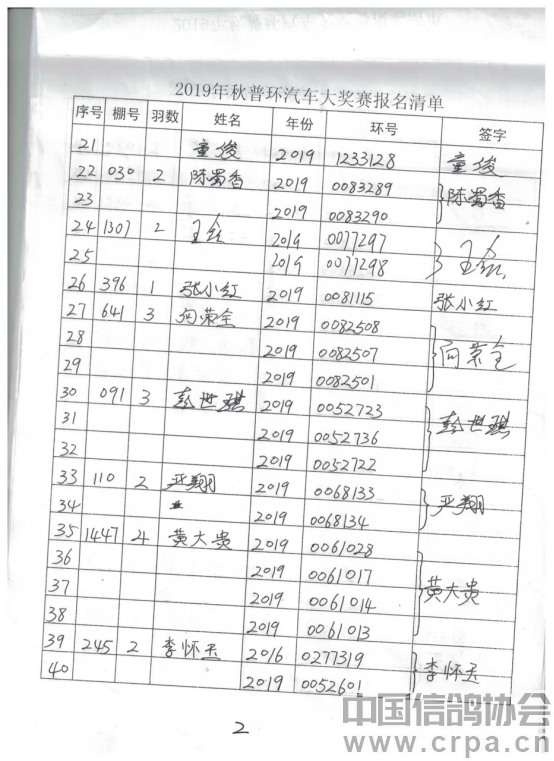 2019年秋普环汽车大奖赛报名清单
序号 棚号 羽数 姓名 年份 环号 签字
21 童俊 2019 1233128 童俊
22 030 2 陈蜀香 2019 0083289 陈蜀香
23 2019 0083290
24 1307 2 2019 0077297
25 2019 0077298
26 396 1 张小红 2019 0081115 张小红
27 641 3 向荣全 2019 0082508 向荣全
28 2019 0082507
29 2019 0082501
30 091 3 彭世琪 2019 0052723 彭世琪
31 2019 0052736
32 2019 0052722
33 110 2 严翔 2019 0068133 严翔
34 2019 0068134
35 1447 4 黄大贵 2019 0061028 黄大贵
36 2019 0061017
37 2019 0061014
38 2019 0061013
39 245 2 李怀玉 2016 0277319 李怀玉
40 2019 0052601
2
中国信鸽协会
www.crpa.cn